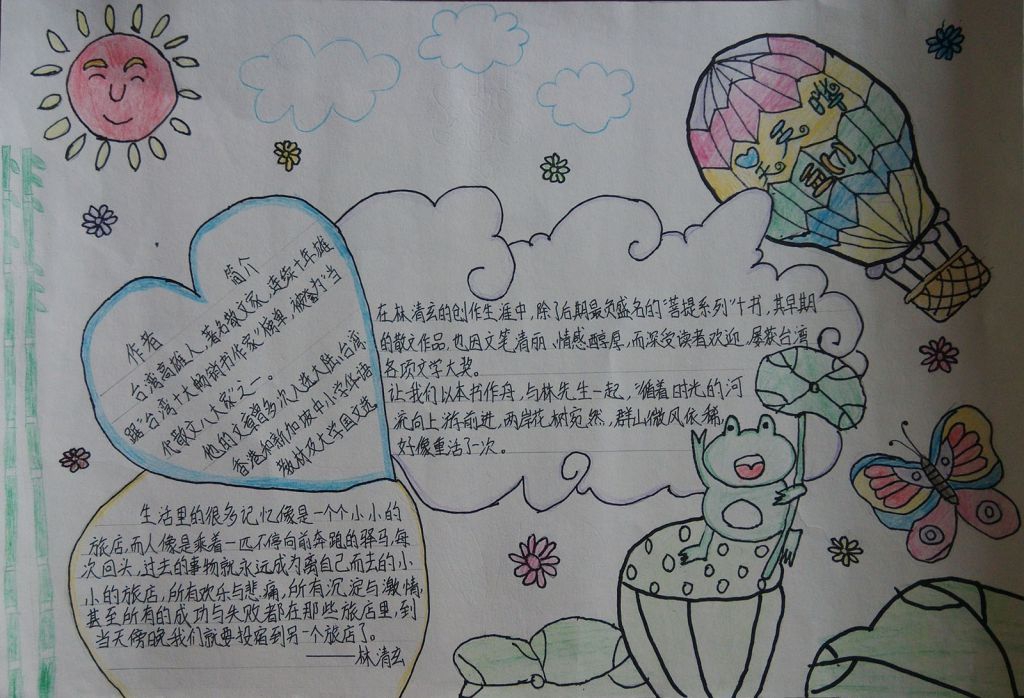 作者
简介
台湾高雄人,著名散文家,连续十年雄
踞“台湾十大畅销书作家”榜单,被誉为“当
代散文八大家”之一。
他的文章曾多次入选大陆,台湾,
香港和新加坡中小学华语
教材及大学国文选
在林清玄的创作生涯中,除了后期最负盛名的“菩提系列”十书,其早期
的散文作品,也因文笔清丽、情感醇厚,而深受读者欢迎,屡获台湾
各项文学大奖。
让我们以本书作舟,与林先生一起,循着时光的河
流向上游前进,两岸花树宛然,群山微风依稀,
好像重活了一次。
生活里的很多记忆像是一个个小小的
旅店,而人像是乘着一匹不停向前奔跑的驿马,每
次回头,过去的事物就永远成为离自己而去的小
小的旅店,所有欢乐与悲痛,所有沉淀与激情,
甚至所有的成功与失败都在那些旅店里,到
当天傍晚,我们就要投宿到另一个旅店了。
——林清玄